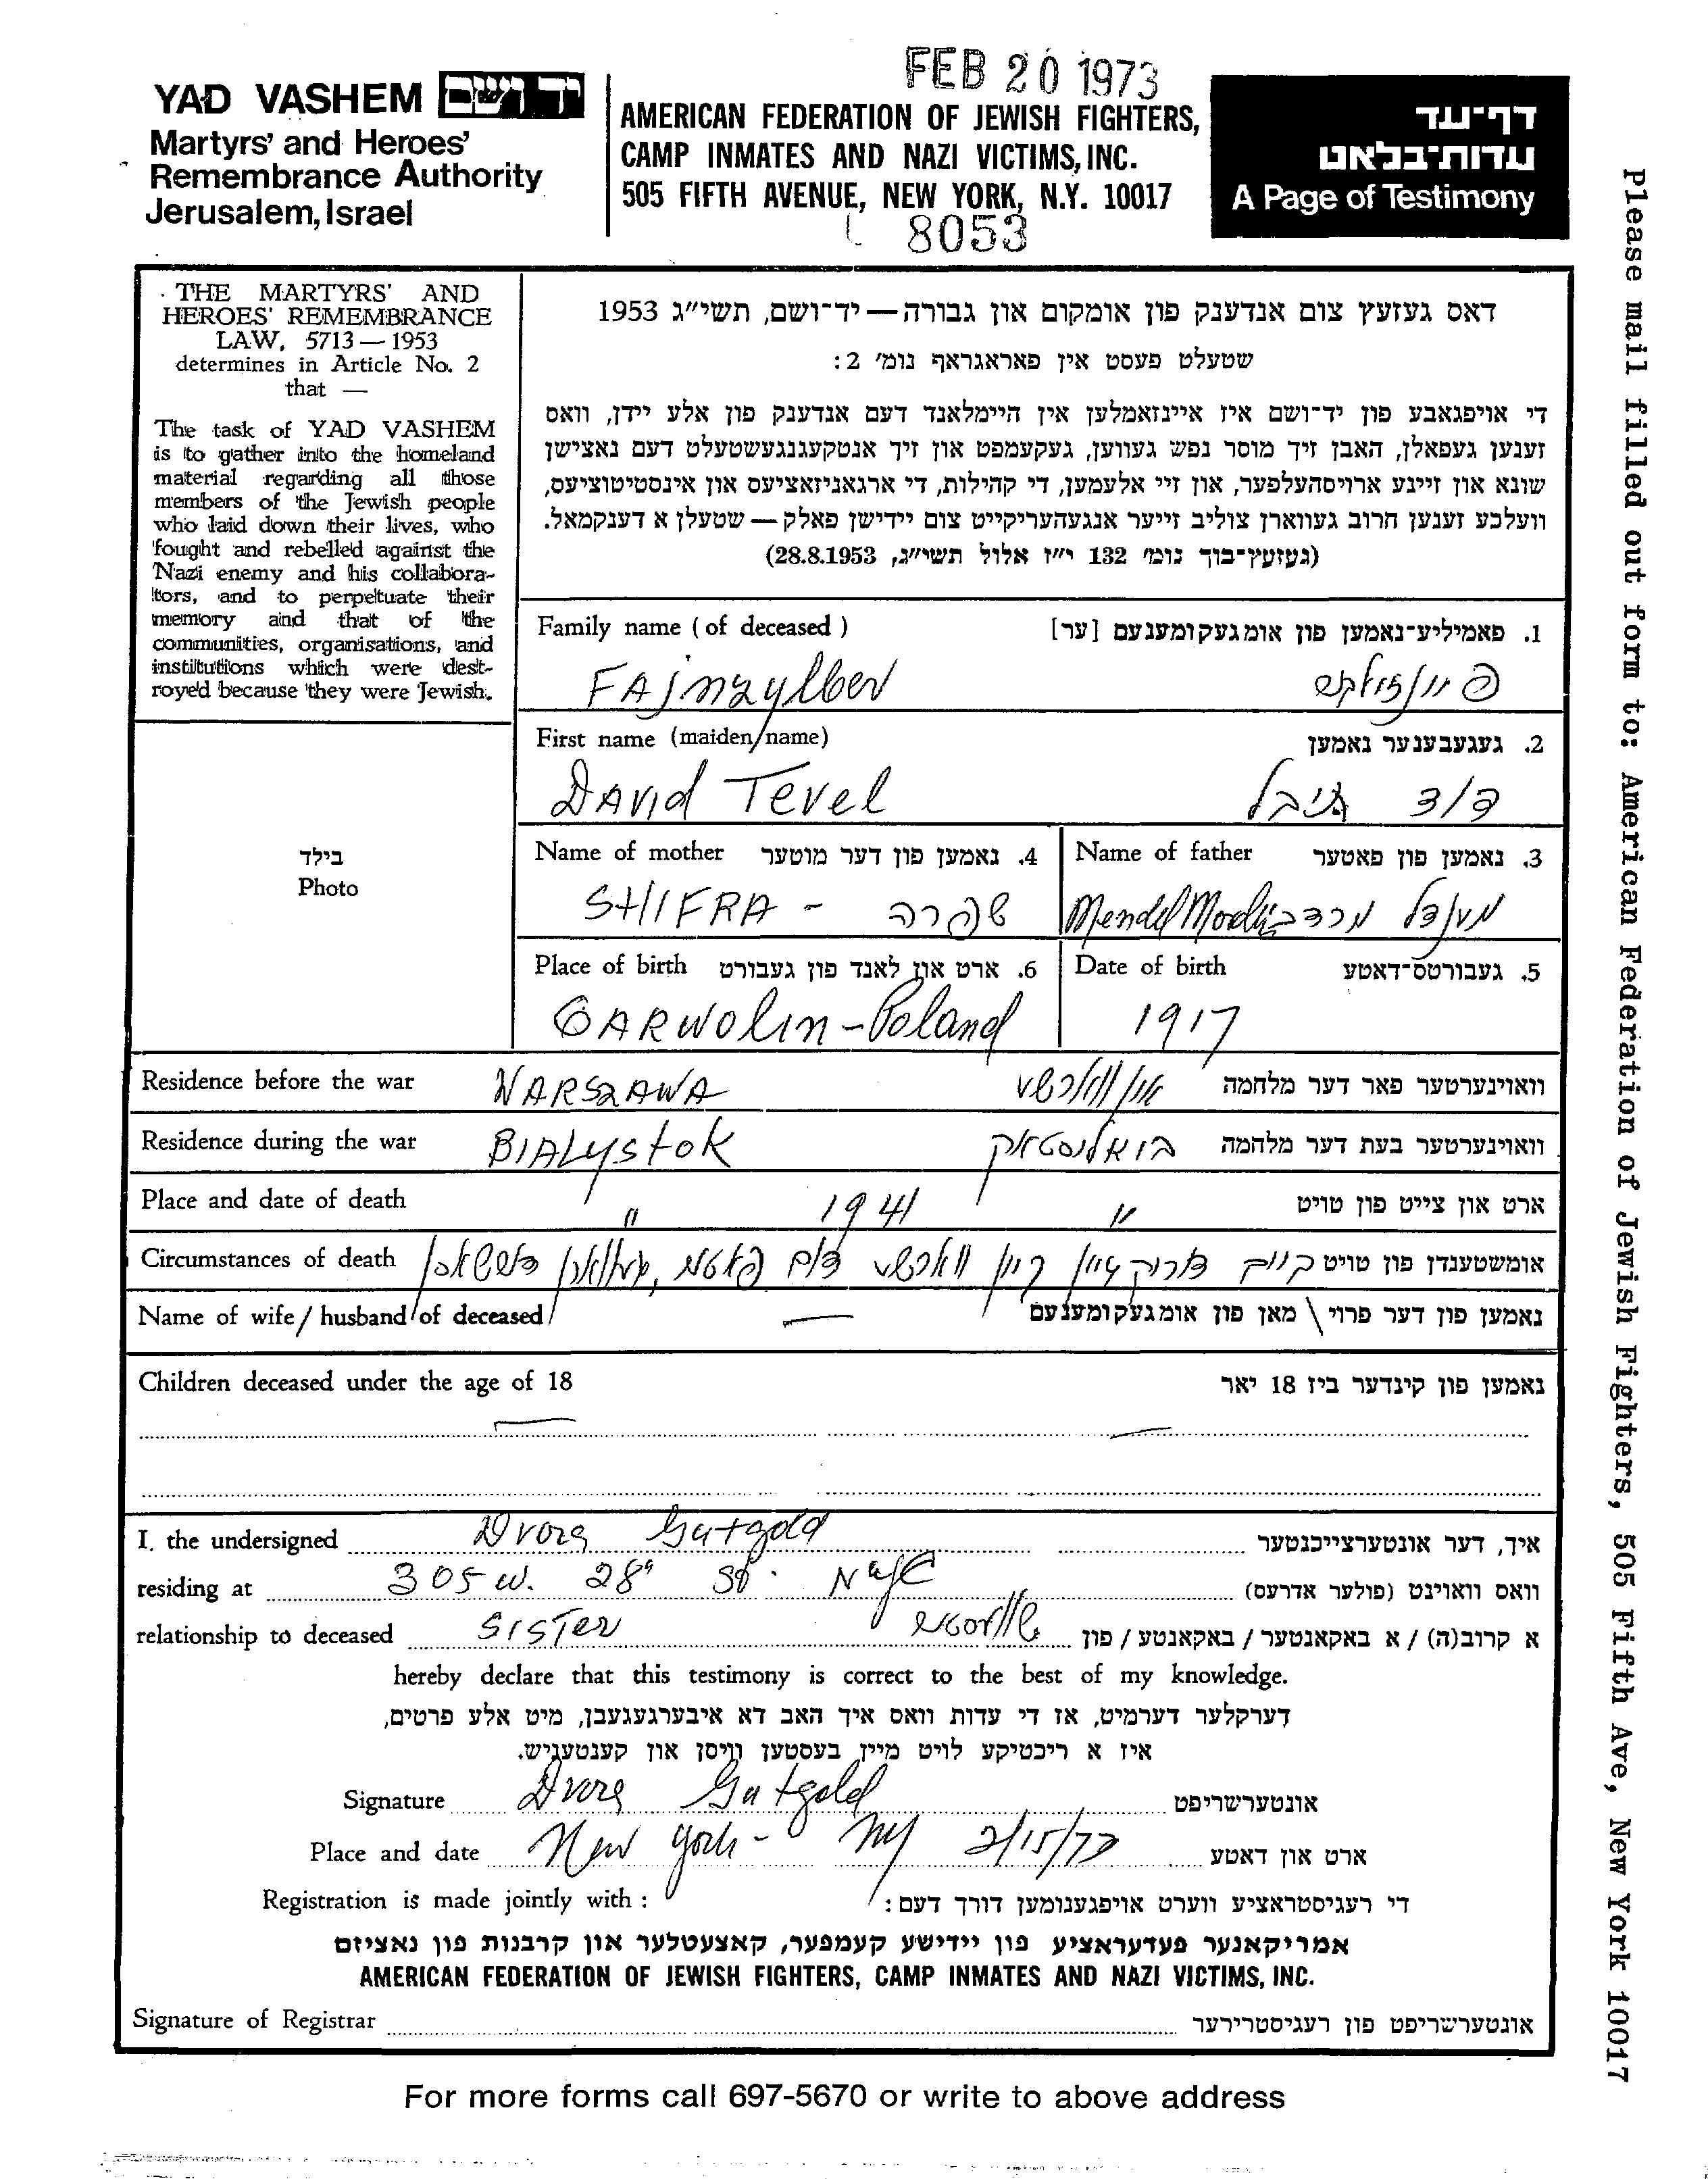 FEB 20 1973
YAD VASHEM יד ושם
Martyrs' and Heroes'
Remembrance Authority
Jerusalem, Israel
AMERICAN FEDERATION OF JEWISH FIGHTERS,
CAMP INMATES AND NAZI VICTIMS, INC.
505 FIFTH AVENUE, NEW YORK, N.Y. 10017
8053
דף־עד
עדות־בלאט
A Page of Testimony
THE MARTYRS' AND
HEROES' REMEMBRANCE
LAW, 5713 — 1953
determines in Article No. 2
that —
The task of YAD VASHEM
is to gather into the homeland
material regarding all those
members of the Jewish people
who laid down their lives, who
fought and rebelled against the
Nazi enemy and his collabora-
tors, and to perpetuate their
memory and that of the
communities, organisations, and
institutions which were dest-
royed because they were Jewish.
דאס געזעץ צום אנדענק פון אומקום און גבורה — יד־ושם, תשי״ג 1953
שטעלט פעסט אין פאראגראף נומ׳ 2:
די אויפגאבע פון יד־ושם איז איינזאמלען אין היימלאנד דעם אנדענק פון אלע יידן, וואס
זענען געפאלן, האבן זיך מוסר נפש געווען, געקעמפט און זיך אנטקעגנגעשטעלט דעם נאצישן
שונא און זיינע ארויסהעלפער, און זיי אלעמען, די קהילות, די ארגאניזאציעס און אינסטיטוציעס,
וועלכע זענען חרוב געווארן צוליב זייער אנגעהעריקייט צום יידישן פאלק — שטעלן א דענקמאל.
(געזעץ־בוך נומ׳ 132 י״ז אלול תשי״ג, 28.8.1953)
Family name ( of deceased ) 1. פאמיליע־נאמען פון אומגעקומענעם [ער]
FAjnzylber
First name (maiden/name) 2. געגעבענער נאמען
DAVid Tevel דוד
Name of mother 4. נאמען פון דער מוטער
SHIFRA - שפרה
Name of father 3. נאמען פון פאטער
Mendel מענדל מרדכי
Place of birth 6. ארט און לאנד פון געבורט
GARWOLin - Poland
Date of birth 5. געבורטס־דאטע
1917
בילד
Photo
Residence before the war WARSZAWA וואוינערטער פאר דער מלחמה
Residence during the war BIALYstoK ביאליסטאק וואוינערטער בעת דער מלחמה
Place and date of death " 1941 " ארט און צייט פון טויט
Circumstances of death אומשטענדן פון טויט
Name of wife / husband of deceased — נאמען פון דער פרוי \ מאן פון אומגעקומענעם
Children deceased under the age of 18 נאמען פון קינדער ביז 18 יאר
I, the undersigned Dvora Gutgold איך, דער אונטערצייכנטער
residing at 305 W. 28 St. NYC וואס וואוינט (פולער אדרעס)
relationship to deceased SISTER שוועסטער א קרוב(ה) / א באקאנטער / באקאנטע / פון
hereby declare that this testimony is correct to the best of my knowledge.
דערקלער דערמיט, אז די עדות וואס איך האב דא איבערגעגעבן, מיט אלע פרטים,
איז א ריכטיקע לויט מיין בעסטען וויסן און קענטעניש.
Signature Dvora Gutgold אונטערשריפט
Place and date New York - NY 2/15/73 ארט און דאטע
Registration is made jointly with : די רעגיסטראציע ווערט אויפגענומען דורך דעם :
אמריקאנער פעדעראציע פון יידישע קעמפער, קאצעטלער און קרבנות פון נאציזם
AMERICAN FEDERATION OF JEWISH FIGHTERS, CAMP INMATES AND NAZI VICTIMS, INC.
Signature of Registrar אונטערשריפט פון רעגיסטרירער
For more forms call 697-5670 or write to above address
Please mail filled out form to: American Federation of Jewish Fighters, 505 Fifth Ave, New York 10017